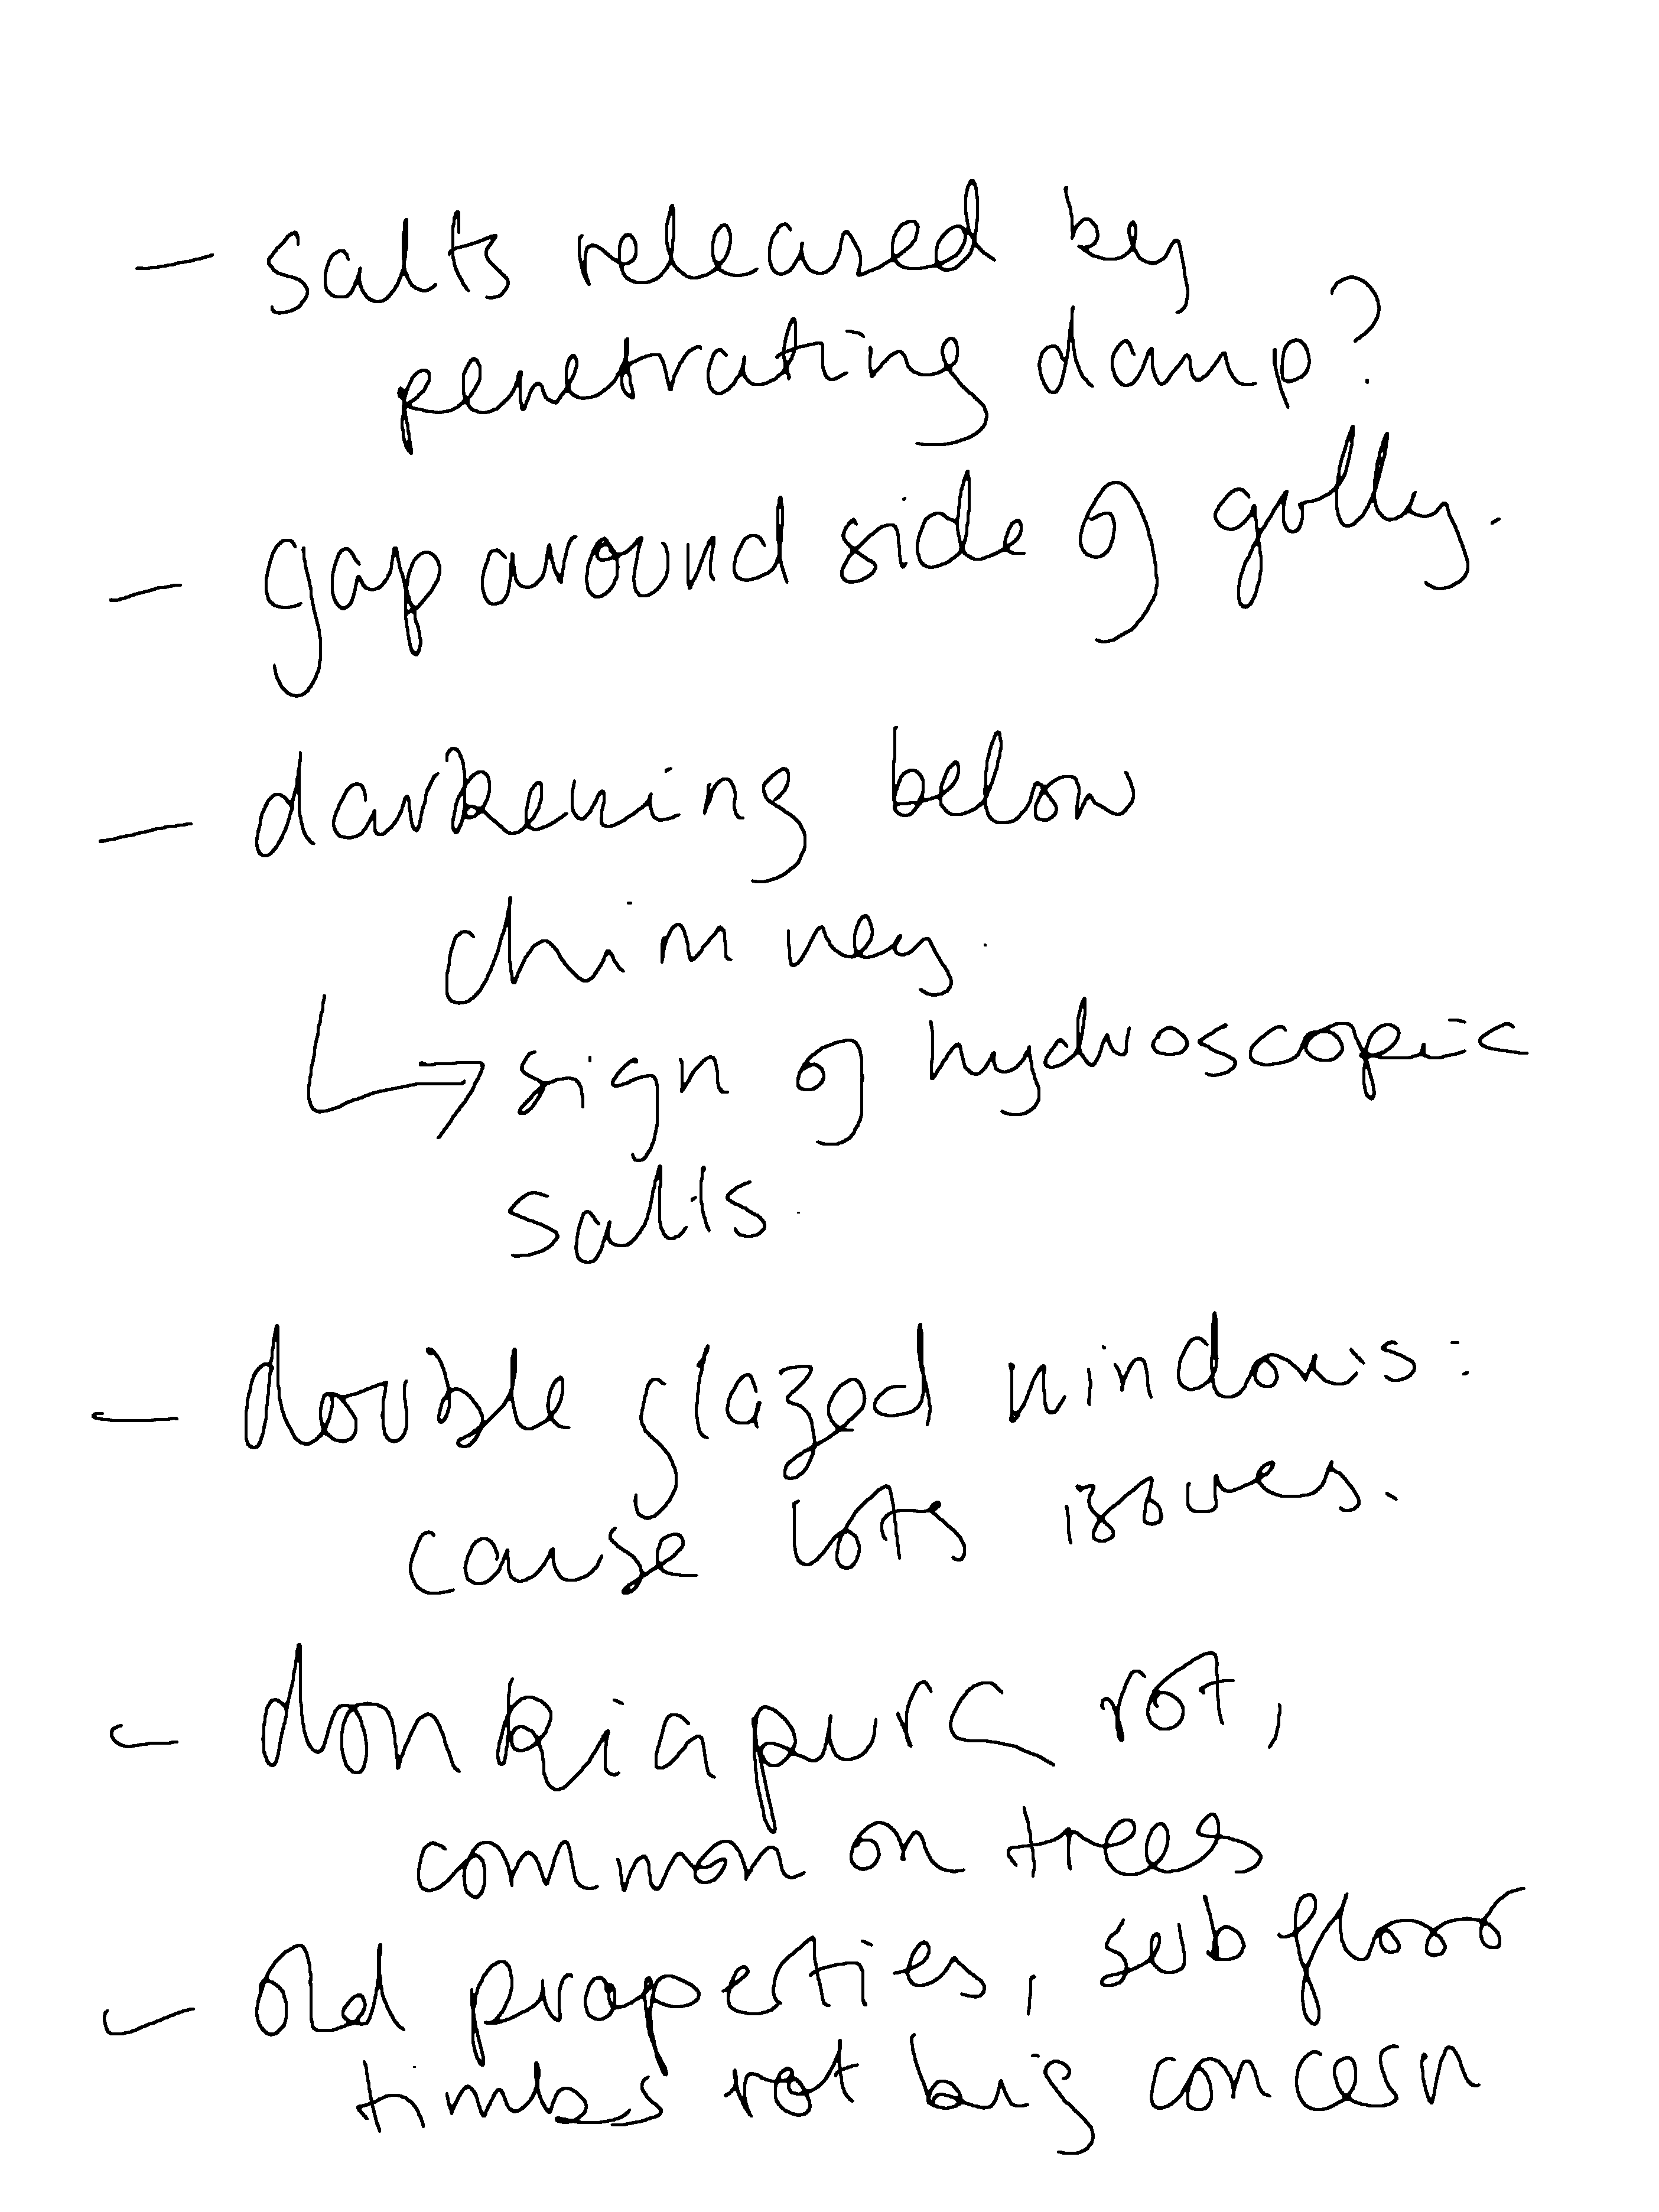 - salts released by
penetrating damp?
- gap around side of gulley.
- darkening below
chimney.
↳ sign of hydroscopic
salts.
- double glazed windows:
cause lots issues.
- donkiapura rot,
common on trees
- old properties, subfloor
timbers rot big concern